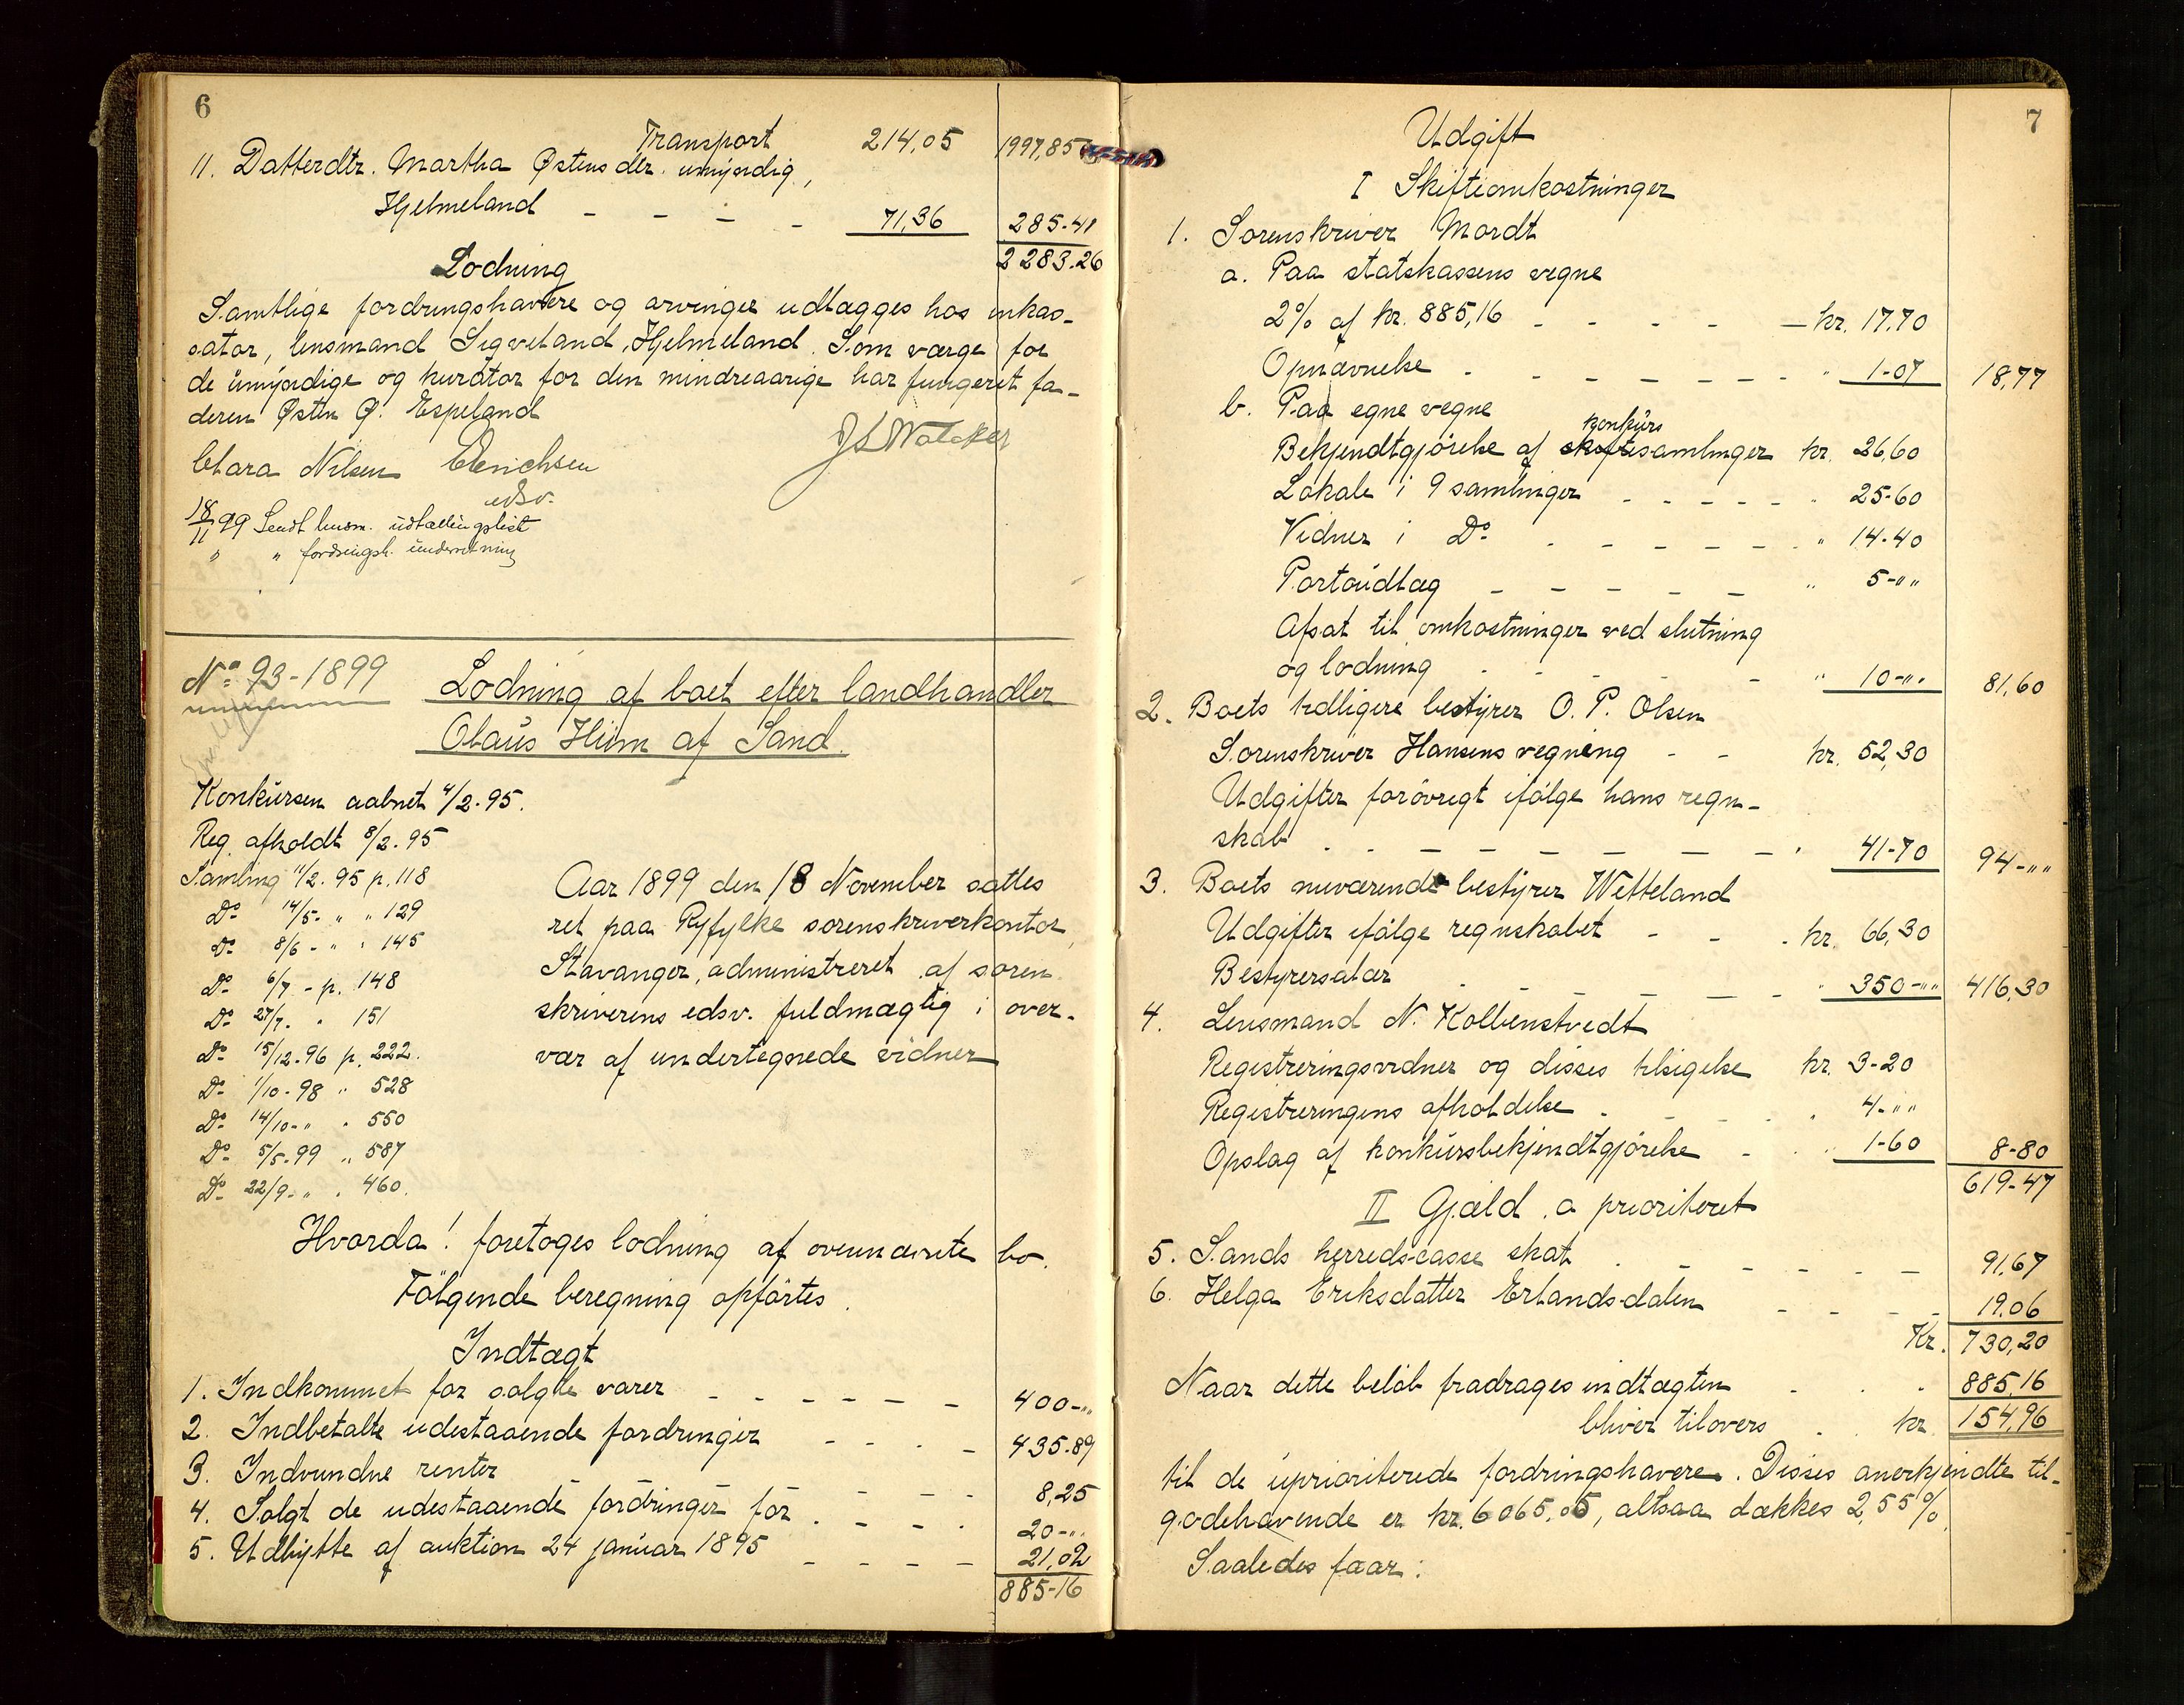 6
Transport 214,05 1997,85
11. Datterdtr. Martha Østensdtr. umyndig,
Hjelmeland - - - - 71,36 285-41
2283.26
Lodning
Samtlige fordringshavere og arvinger udlægges hos inkas-
sator, lensmand Sigveland, Hjelmeland. Som værge for
de umyndige og kurator for den mindreaarige har fungeret fa-
deren Østen Ø. Espeland
J L Walcker
Clara Nilsen CErichsen
edsv.
18/11 99 Sendt lensm. udtællingsliste
" " fordringsh. underretning
No 93-1899 Lodning af boet efter landhandler
Olaus Hiim af Sand.
Konkursen aabnet 4/2-95.
Reg. afholdt 8/2.95
Samling 11/2.95 p. 118
Do 14/5- " " 129
Do 8/6- " " 145
Do 6/7 - p. 148
Do 27/7. " 151
Do 15/12.96 p. 222.
Do 1/10-98 " 528
Do 14/10- " " 550
Do 5/5-99 " 587
Do 22/9- " " 460.
Aar 1899 den 18 November sattes
ret paa Ryfylke sorenskriverkontor,
Stavanger, administreret af soren
skriverens edsv. fuldmægtig i over-
vær af undertegnede vidner
Hvorda! foretoges lodning af ovennævnte bo.
Følgende beregning opførtes.
Indtægt
1. Indkommet for solgte varer - - - - - 400-"
2. Indbetalte udestaaende fordringer - - - - 435.89
3. Indvundne renter - - - - 8,25
4. Solgt de udestaaende fordringer for - - - 20-"
5. Udbytte af auktion 24 januar 1895 - - - - 21,02
885-16
7
Udgift
I Skifteomkostninger
1. Sorenskriver Mordt
a. Paa statskassens vegne
2% af kr. 885,16 - - - - kr. 17.70
Opnævnelse - - - - - - - " 1-07 18,77
b. Paa egne vegne
konkurs
Bekjendtgjørelse af skiftesamlinger kr. 26,60
Lokale i 9 samlinger - - - - - " 25-60
Vidner i Do - - - - - " 14-40
Portoudlæg - - - - - " 5-""
Afsat til omkostninger ved slutning
og lodning - - - - " 10-"" 81,60
2. Boets tidligere bestyrer O. P. Olsen
Sorenskriver Hansens regning - - kr. 52,30
Udgifter forøvrigt ifølge hans regn-
skab - - - - - - - - " 41-70 94-""
3. Boets nuværende bestyrer Wetteland
Udgifter ifølge regnskabet - - - kr. 66,30
Bestyrersalær - - - - - - " 350-"" 416,30
4. Lensmand N. Kolbenstvedt
Registreringsvidner og disses tilsigelse kr. 3-20
Registreringens afholdelse - - - " 4-""
Opslag af konkursbekjendtgjørelse - " 1-60 8-80
619-47
II Gjæld, a prioriteret
5. Sands herredscasse skat - - - - - - 91,67
6. Helga Eriksdatter Erlandsdalen - - - - 19.06
Kr. 730,20
Naar dette beløb fradrages indtægten - - - 885,16
bliver tilovers - - kr. 154,96
til de uprioriterede fordringshavere. Disses anerkjendte til-
godehavende er kr. 6065.05, altsaa dækkes 2,55%.
Saaledes faar: